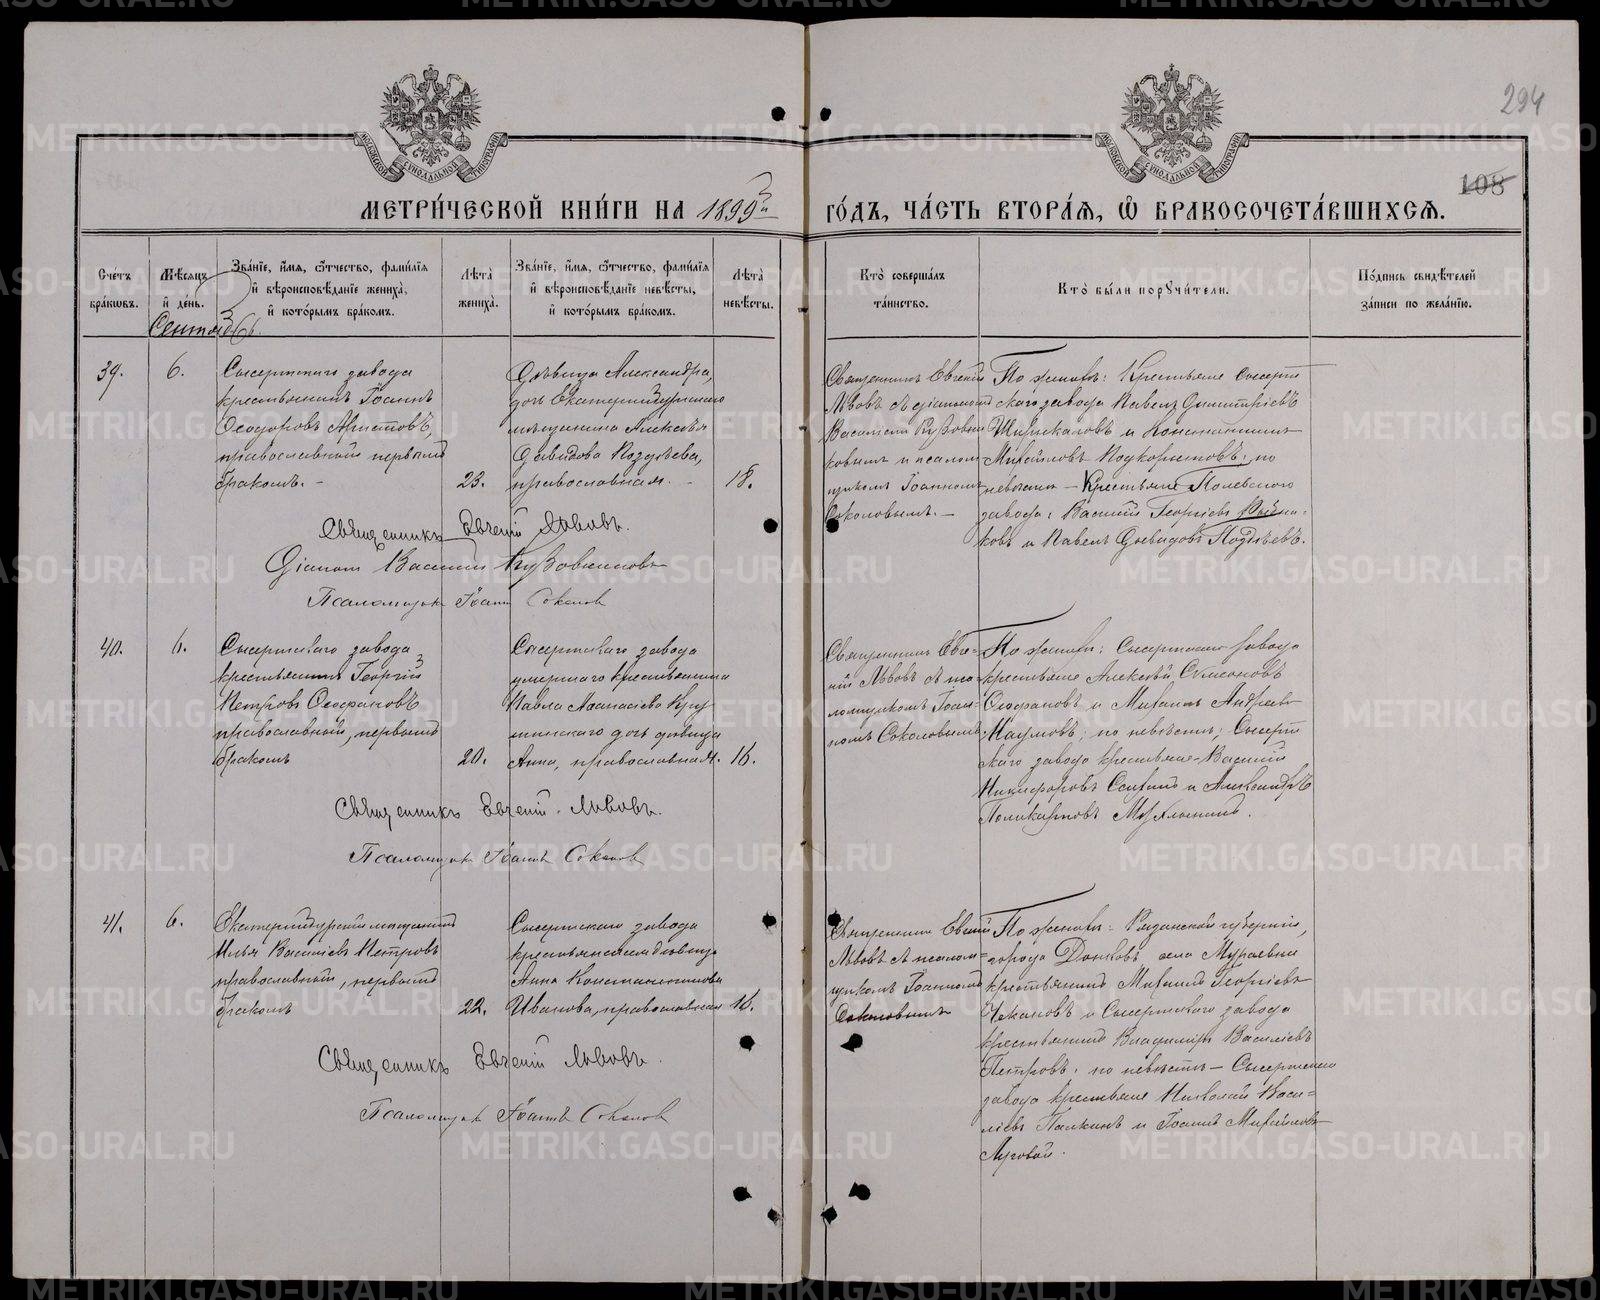 294
108
МЕТРИ́ЧЕСКОЙ КНИ́ГИ НА 1899й
ГО́ДЪ, ЧА́СТЬ ВТОРА́Я, Ѿ БРАКОСОЧЕТА́ВШИХСЯ.
Сче́тъ бра́кѡвъ.
Мѣ́сяцъ и҆ де́нь.
Зва́нїе, и҆́мя, ѻ҆́тчество, фами́лїя и҆ вѣроисповѣ́данїе жениха̀, и҆ кото́рымъ бра́комъ.
Лѣта̀ жениха̀.
Зва́нїе, и҆́мя, ѻ҆́тчество, фами́лїя и҆ вѣроисповѣ́данїе невѣ́сты, и҆ кото́рымъ бра́комъ.
Лѣта̀ невѣ́сты.
Кто̀ соверша́лъ та́инство.
Кто̀ бы́ли порꙋчи́тели.
По́дпись свидѣ́телей за́писи по жела́нїю.
39.
6.
Сысертскаго завода
крестьянинъ Іоаннъ
Ѳеодоровъ Аристовъ,
православный первымъ
бракомъ. -
23.
Дѣвица Александра,
дочь Екатеринбургскаго
мѣщанина Алексѣя
Давидова
православная. -
18.
Священникъ Евгеній
Львовъ съ діакономъ
Василіемъ
ковымъ и псалом
щикомъ Іоанномъ
Соколовымъ. -
По женихѣ: Крестьяне Сысерт
скаго завода Павелъ Димитріевъ
и Константинъ
Михайловъ Подкорытовъ; по
невѣстѣ - Крестьяне Полевскаго
завода: Василій Георгіевъ
ковъ и Павелъ Давидовъ
Священникъ Евгеній Львовъ.
Діаконъ Василій
Псаломщикъ Іоаннъ Соколовъ
40.
6.
Сысертскаго завода
крестьянинъ Георгій
Петровъ Ѳеофановъ
православный, первымъ
бракомъ
20.
Сысертскаго завода
умершаго крестьянина
Павла Аѳанасіева
дочь дѣвица
Анна, православная.
16.
Священникъ Евге-
ній Львовъ съ пса-
ломщикомъ Іоан-
номъ Соколовымъ.
По женихѣ: Сысертскаго завода
крестьяне Алексѣй Симеоновъ
Ѳеофановъ и Михаилъ Андреевъ
Наумовъ; по невѣстѣ: Сысерт
скаго завода крестьяне - Василій
Никифоровъ и Александръ
Поликарповъ
Священникъ Евгеній Львовъ.
Псаломщикъ Іоаннъ Соколовъ
41.
6.
Екатеринбургскій мѣщанинъ
Илья Василіевъ Петровъ
православный, первымъ
бракомъ
22.
Сысертскаго завода
крестьянская дѣвица
Анна Константинова
Иванова, православная
18.
Священникъ Евгеній
Львовъ съ псалом-
щикомъ Іоанномъ
Соколовымъ
По женихѣ: Рязанской губерніи,
города Данковъ села Мураевни
крестьянинъ Михаилъ Георгіевъ
Чекановъ и Сысертскаго завода
крестьянинъ Владиміръ Василіевъ
Петровъ. по невѣстѣ - Сысертскаго
завода крестьяне Николай Васи-
ліевъ Палкинъ и Іоаннъ Михайловъ
Луговой.
Священникъ Евгеній Львовъ.
Псаломщикъ Іоаннъ Соколовъ
METRIKI.GASO-URAL.RU